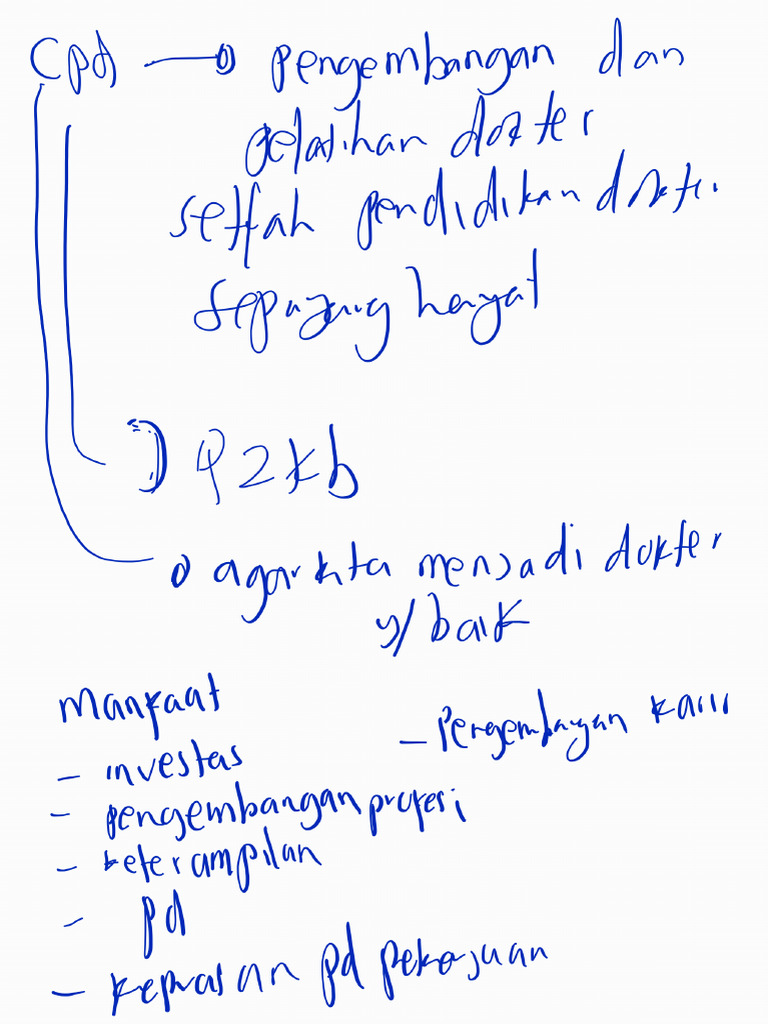 Cpd → pengembangan dan
pelatihan dokter
setlah pendidikan dokter
sepajang hayat
P2kb
agar kita menjadi dokter
y/ baik
Manfaat
- investas
- pengembangan profesi
- keterampilan
- pd
- kepuasan pd pekerjuan
- Pengembangan karir